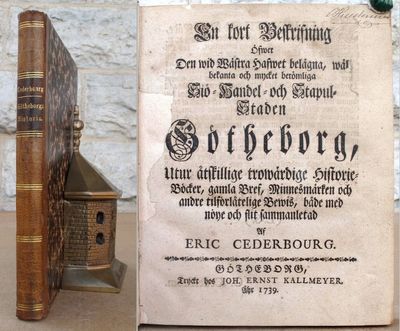 Cederbourg
Götheborg:
Historia.
En kort Beskrifning
Öfwer
Den wid Wästra Hafwet belägna, wäl
bekanta och mycket berömliga
Siö-Handel-och Stapul-
Staden
Götheborg,
Utur åtskillige trowärdige Historie-
Böcker, gamla Bref, Minnesmärken och
andre tilförlåtelige Bewis, både med
nöye och flit sammanletad
Af
ERIC CEDERBOURG.
GÖTHEBORG,
Tryckt hos JOH. ERNST KALLMEYER,
Åhr 1739.